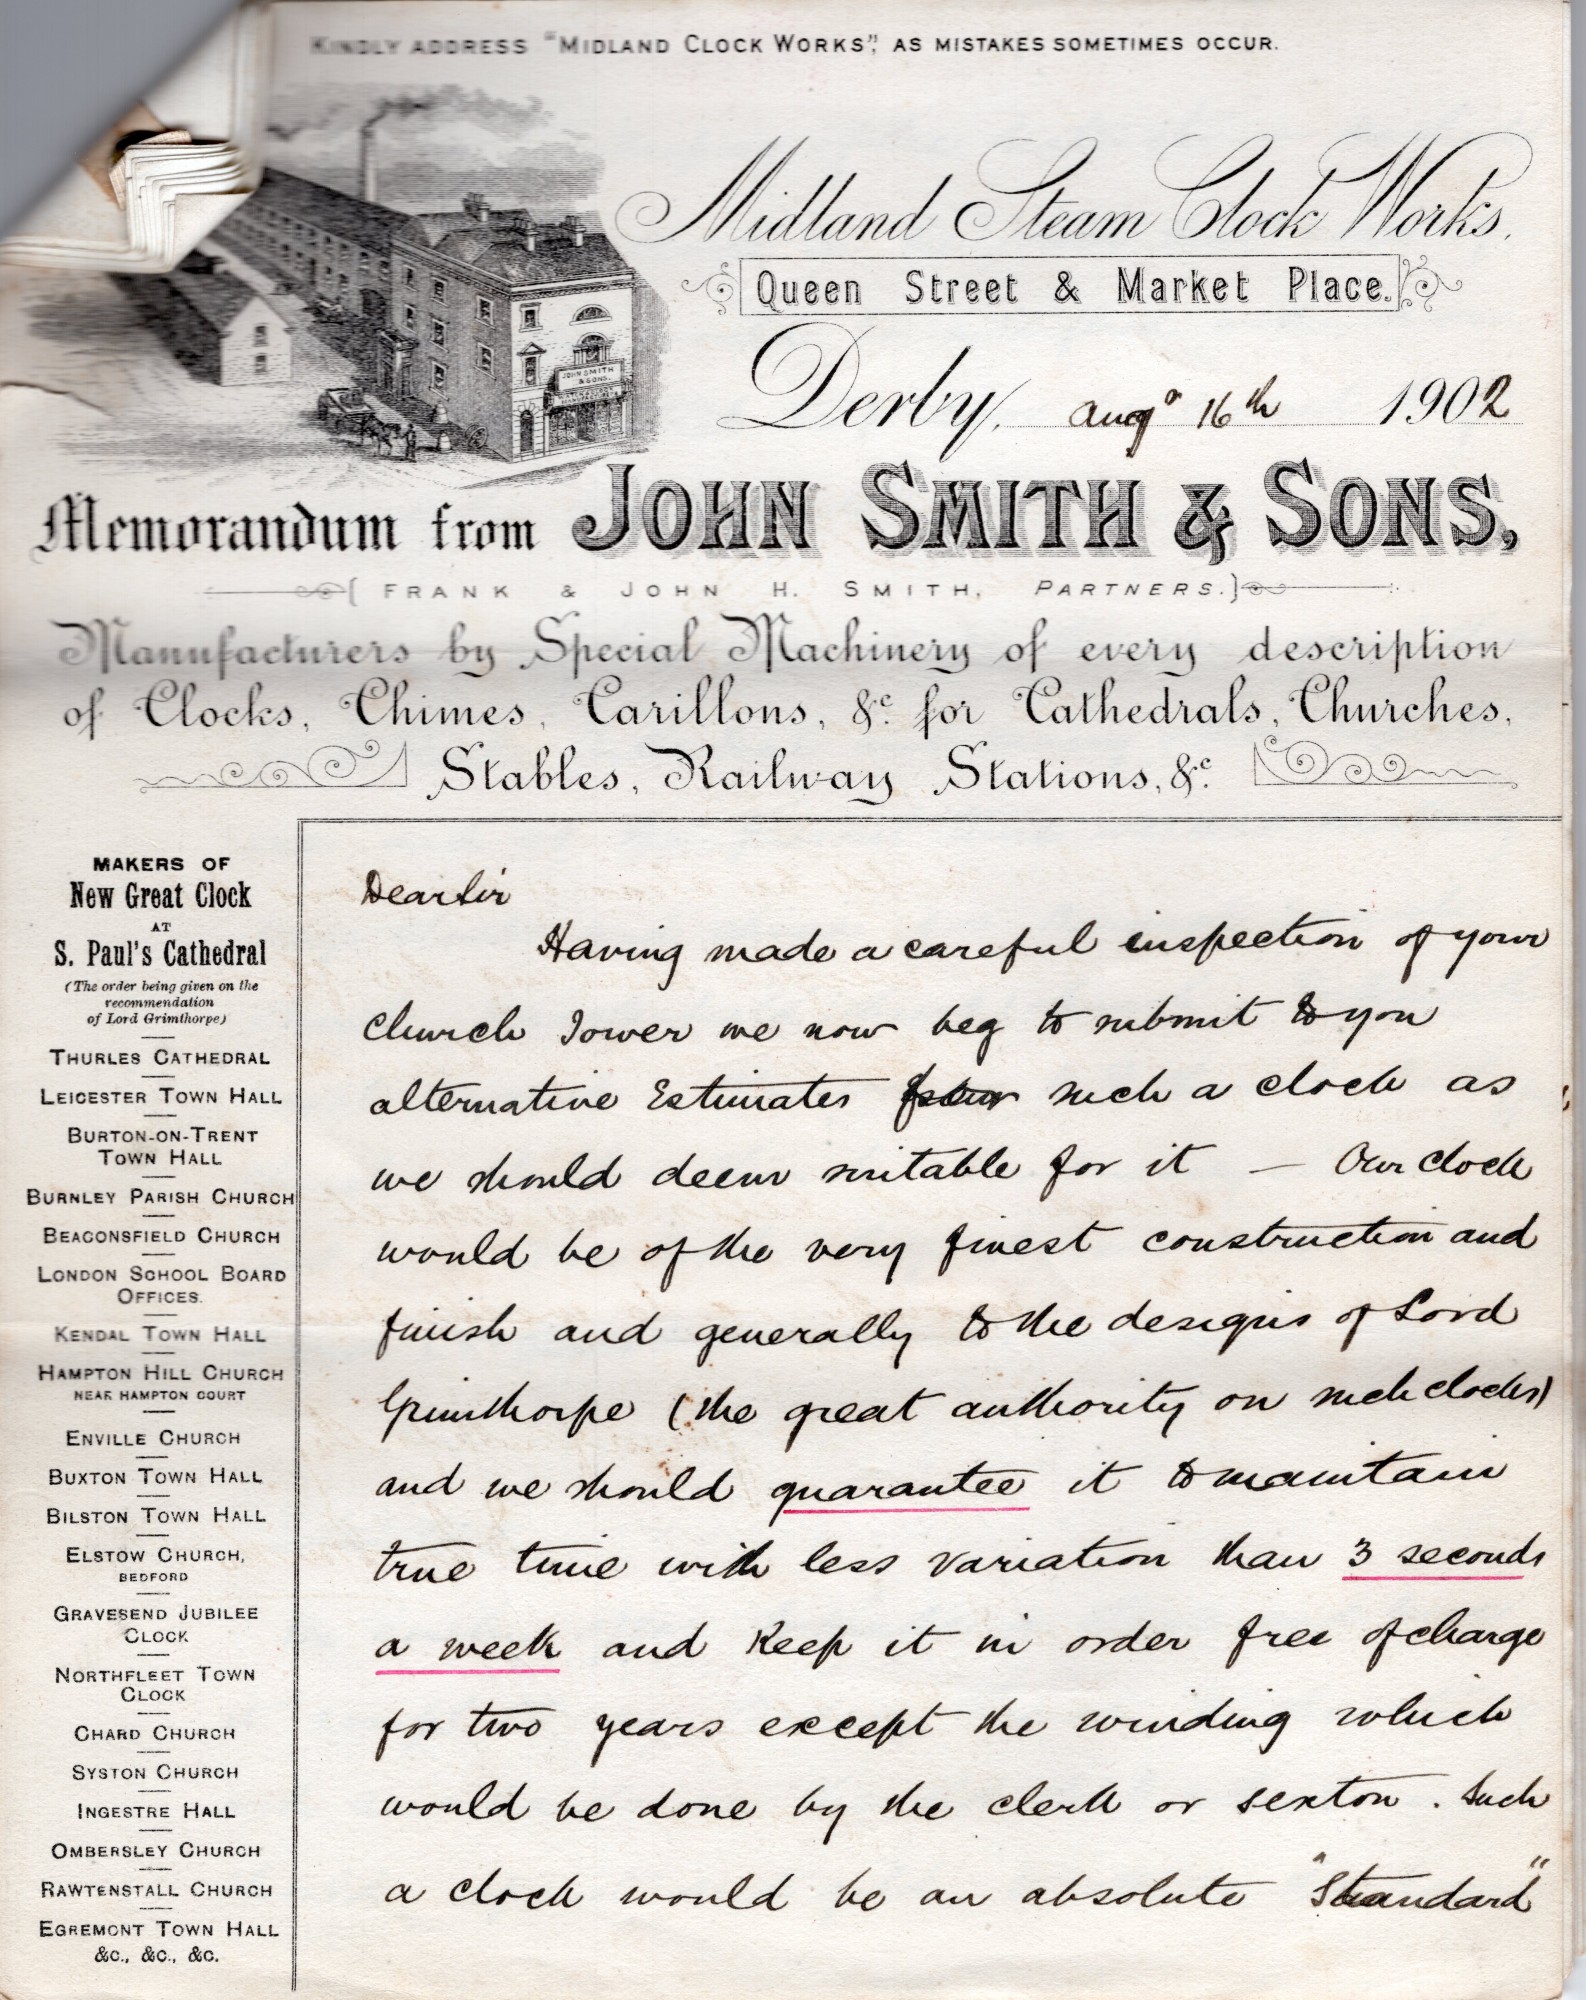 KINDLY ADDRESS "MIDLAND CLOCK WORKS", AS MISTAKES SOMETIMES OCCUR.
Midland Steam Clock Works,
Queen Street & Market Place.
Derby, Augo 16th 1902
JOHN SMITH & SONS.
Memorandum from JOHN SMITH & SONS,
{FRANK & JOHN H. SMITH, PARTNERS.}
Manufacturers by Special Machinery of every description
of Clocks, Chimes, Carillons, &c. for Cathedrals, Churches,
Stables, Railway Stations, &c.
MAKERS OF
New Great Clock
AT
S. Paul's Cathedral
(The order being given on the
recommendation
of Lord Grimthorpe)
THURLES CATHEDRAL
LEICESTER TOWN HALL
BURTON-ON-TRENT
TOWN HALL
BURNLEY PARISH CHURCH
BEACONSFIELD CHURCH
LONDON SCHOOL BOARD
OFFICES.
KENDAL TOWN HALL
HAMPTON HILL CHURCH
NEAR HAMPTON COURT
ENVILLE CHURCH
BUXTON TOWN HALL
BILSTON TOWN HALL
ELSTOW CHURCH,
BEDFORD
GRAVESEND JUBILEE
CLOCK
NORTHFLEET TOWN
CLOCK
CHARD CHURCH
SYSTON CHURCH
INGESTRE HALL
OMBERSLEY CHURCH
RAWTENSTALL CHURCH
EGREMONT TOWN HALL
&c., &c., &c.
Dear Sir
Having made a careful inspection of your
church Tower we now beg to submit to you
alternative Estimates such a clock as
we should deem suitable for it — Our clock
would be of the very finest construction and
finish and generally to the designs of Lord
Grimthorpe (the great authority on such clocks)
and we should guarantee it to maintain
true time with less variation than 3 seconds
a week and keep it in order free of charge
for two years except the winding which
would be done by the clerk or sexton. Such
a clock would be an absolute "Standard"